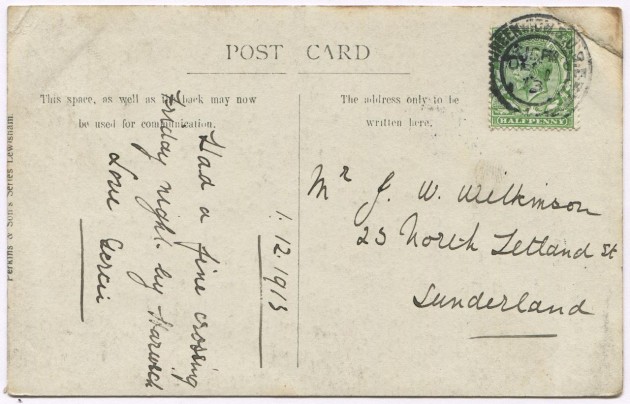 POST CARD
This space, as well as the back may now
be used for communication.
The address only to be
written here.
1.12.1913
Had a fine crossing
Friday night by Harwich
Love
Mr J. W. Wilkinson
23 North St
Sunderland
HALFPENNY
Perkins & Son's Series Lewisham.